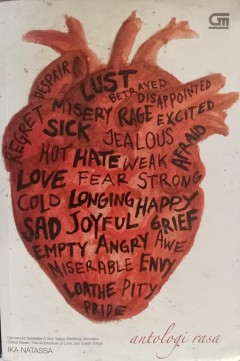 GM
DESPAIR
LUST
REGRET
BETRAYED
MISERY
RAGE
DISAPPOINTED
EXCITED
SICK
JEALOUS
AFRAID
HOT
HATE
WEAK
LOVE
FEAR
STRONG
COLD
LONGING
HAPPY
SAD
JOYFUL
GRIEF
EMPTY
ANGRY
AWE
MISERABLE
ENVY
LOATHE
PITY
PRIDE
antologi rasa
IKA NATASSA